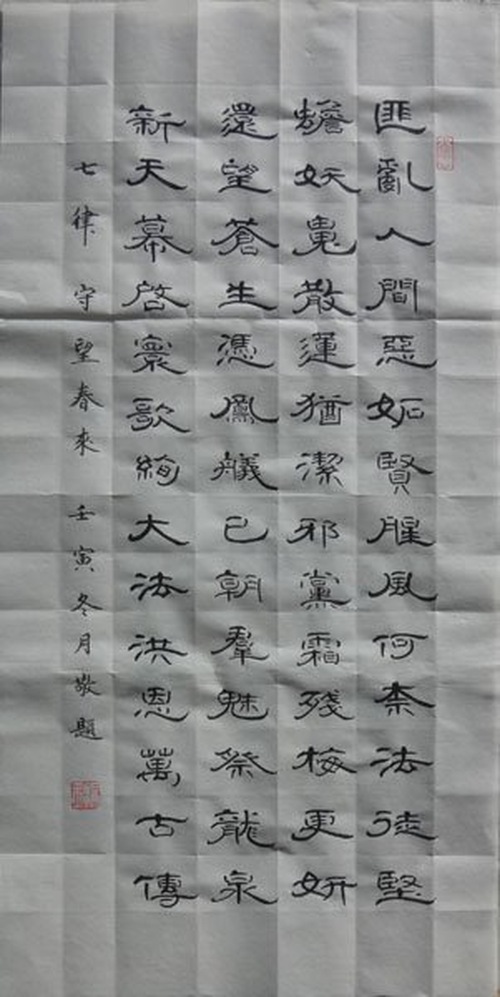 匪亂人間惡妬賢腥風何柰法徒堅
蟾妖鬼散蓮猶潔邪黨霜殘梅更妍
還望蒼生憑鳳艤已朝羣魅祭龍泉
新天幕啓寰歌絢大法洪恩萬古傳
七律 守望春來 壬寅冬月敬題